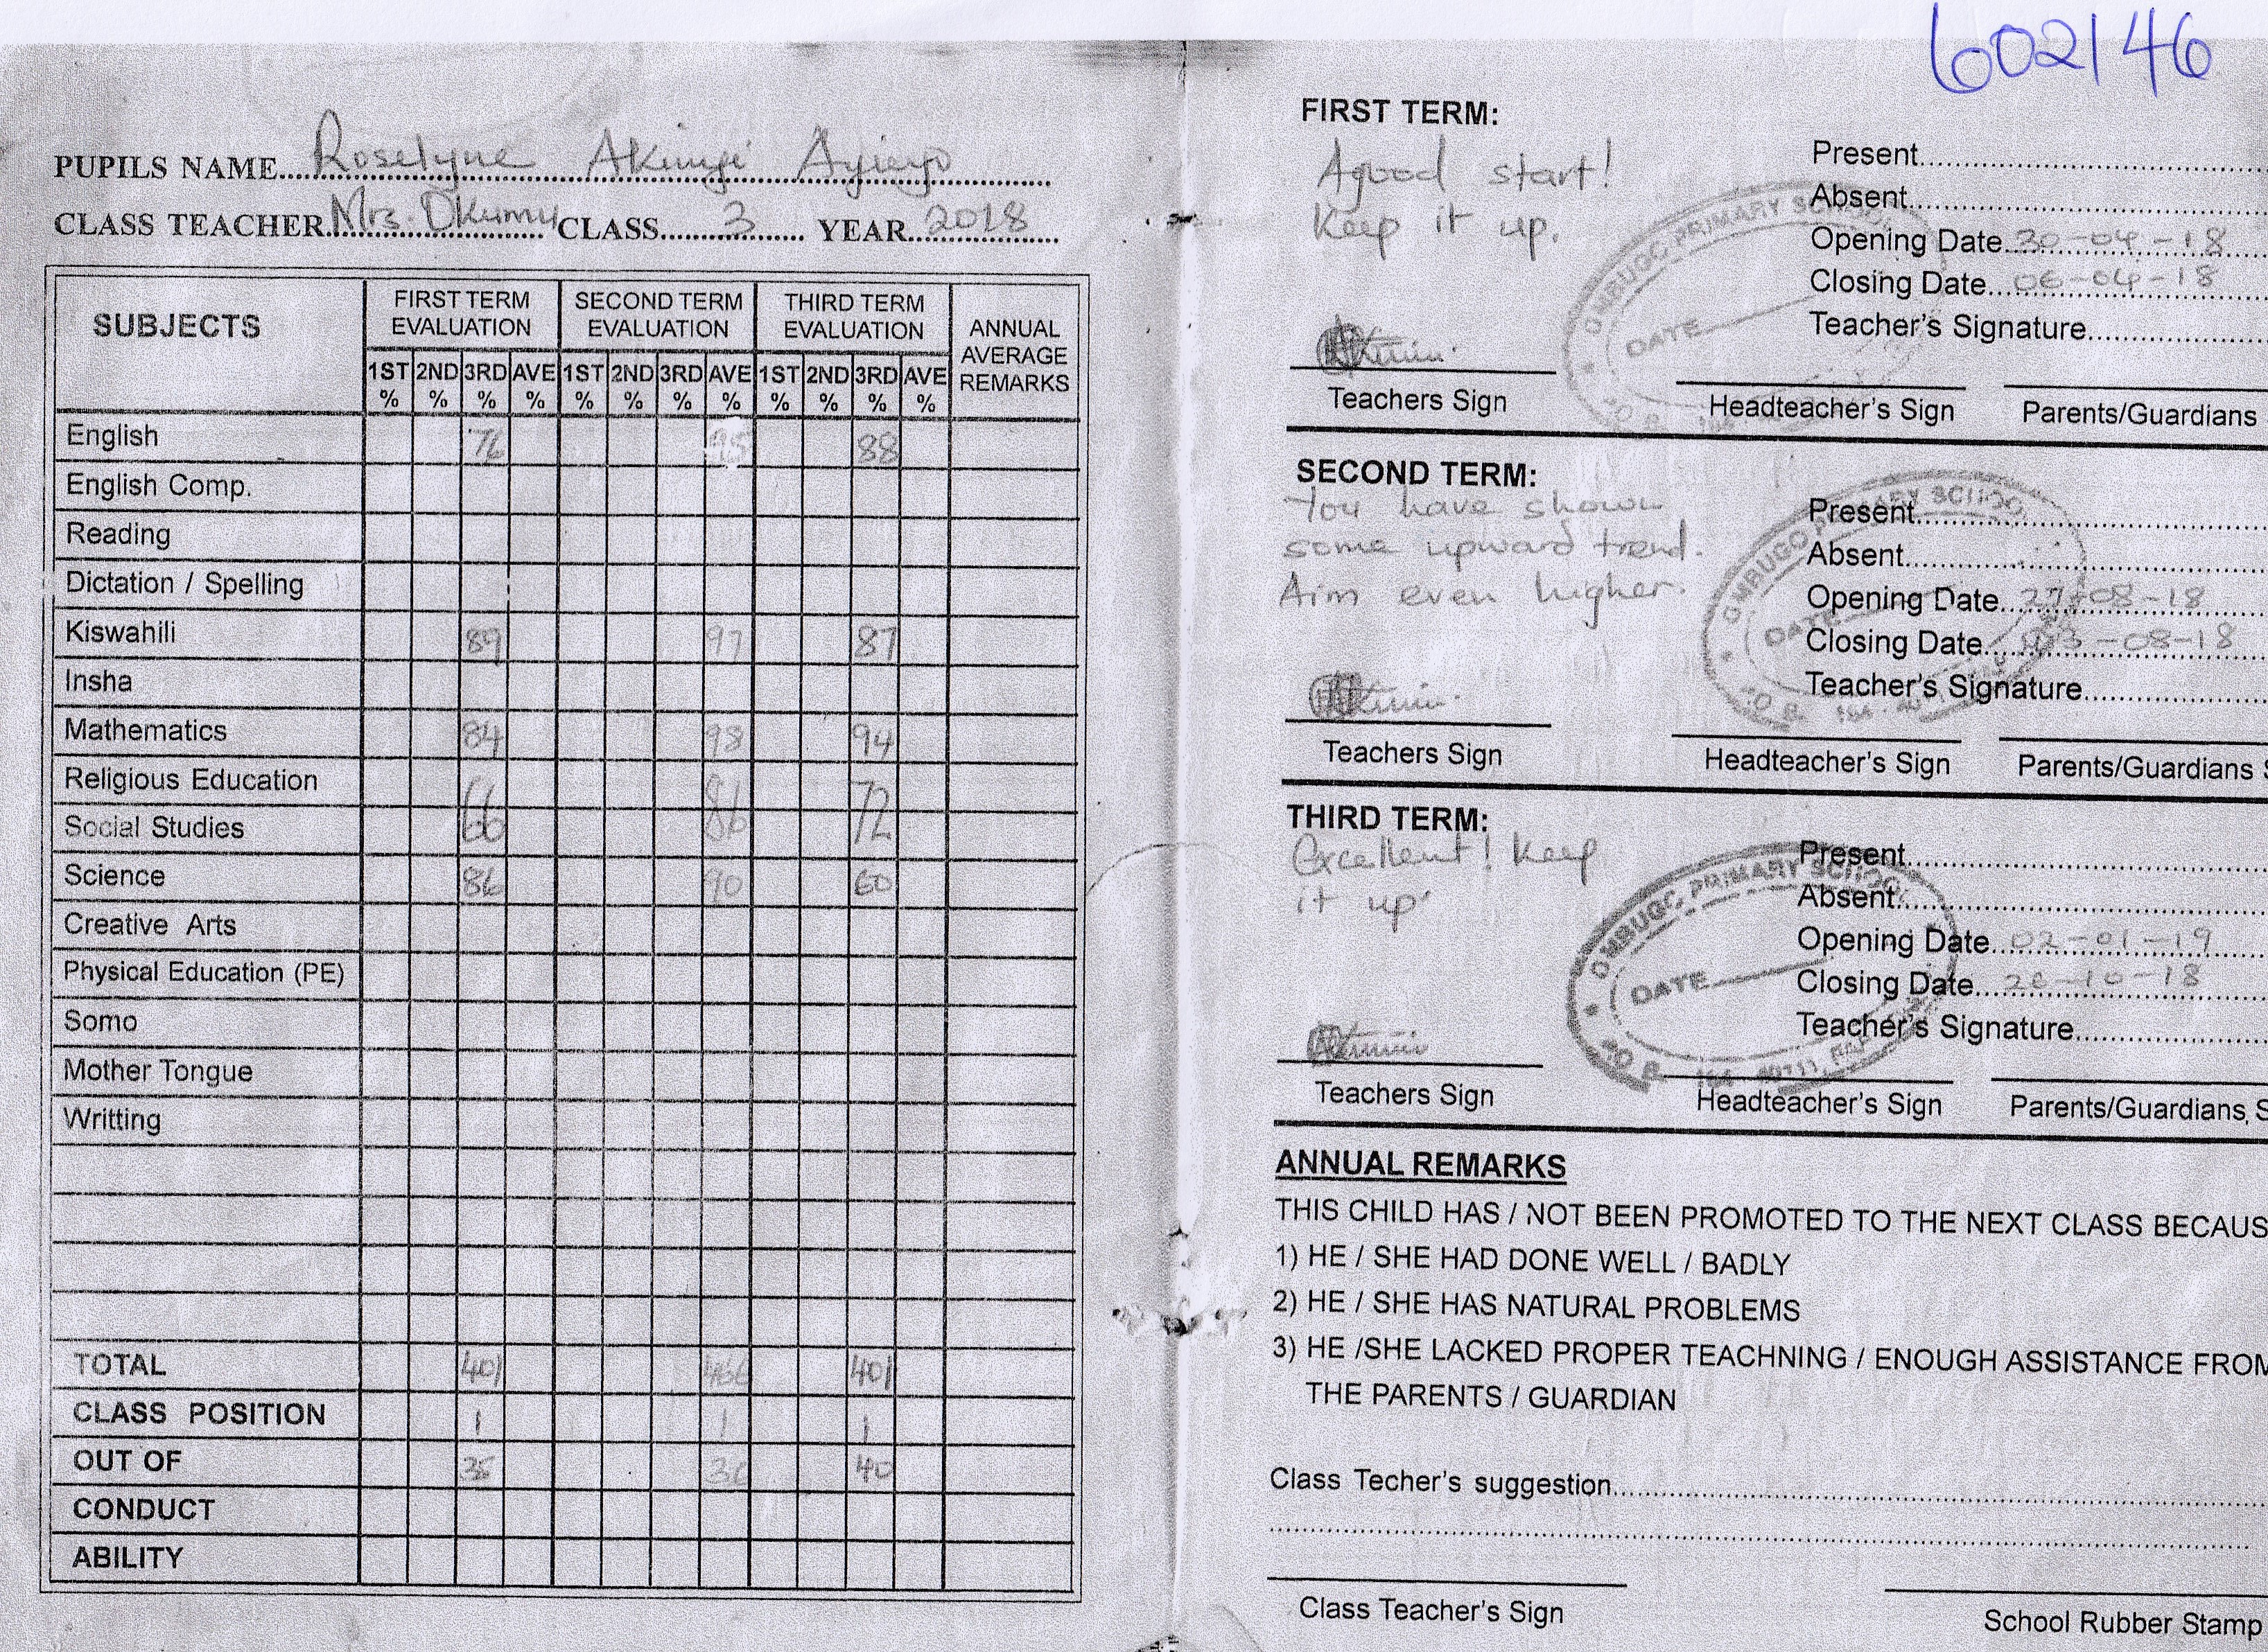 602146
PUPILS NAME Roselyne Akinyi Ayieyo
CLASS TEACHER Mrs. Okumu CLASS 3 YEAR 2018
SUBJECTS
FIRST TERM EVALUATION SECOND TERM EVALUATION THIRD TERM EVALUATION ANNUAL AVERAGE REMARKS
1ST % 2ND % 3RD % AVE % 1ST % 2ND % 3RD % AVE % 1ST % 2ND % 3RD % AVE %
English 76 95 88
English Comp.
Reading
Dictation / Spelling
Kiswahili 89 97 87
Insha
Mathematics 84 98 94
Religious Education
Social Studies 66 86 72
Science 86 90 60
Creative Arts
Physical Education (PE)
Somo
Mother Tongue
Writting
TOTAL 401 466 401
CLASS POSITION 1 1 1
OUT OF 40
CONDUCT
ABILITY
FIRST TERM:
A good start!
Keep it up.
Present
Absent
Opening Date 30-04-18
Closing Date 06-04-18
Teacher's Signature
Teachers Sign Headteacher's Sign Parents/Guardians
OMBUGO PRIMARY SCHOOL
DATE
SECOND TERM:
You have shown
some upward trend.
Aim even higher.
Present
Absent
Opening Date 27-08-18
Closing Date 03-08-18
Teacher's Signature
Teachers Sign Headteacher's Sign Parents/Guardians S
OMBUGO PRIMARY SCHOOL
DATE
THIRD TERM:
Excellent! Keep
it up
Present
Absent
Opening Date 02-01-19
Closing Date 26-10-18
Teacher's Signature
Teachers Sign Headteacher's Sign Parents/Guardians S
OMBUGO PRIMARY SCHOOL
DATE
ANNUAL REMARKS
THIS CHILD HAS / NOT BEEN PROMOTED TO THE NEXT CLASS BECAUS
1) HE / SHE HAD DONE WELL / BADLY
2) HE / SHE HAS NATURAL PROBLEMS
3) HE /SHE LACKED PROPER TEACHNING / ENOUGH ASSISTANCE FROM
THE PARENTS / GUARDIAN
Class Techer's suggestion
Class Teacher's Sign School Rubber Stamp